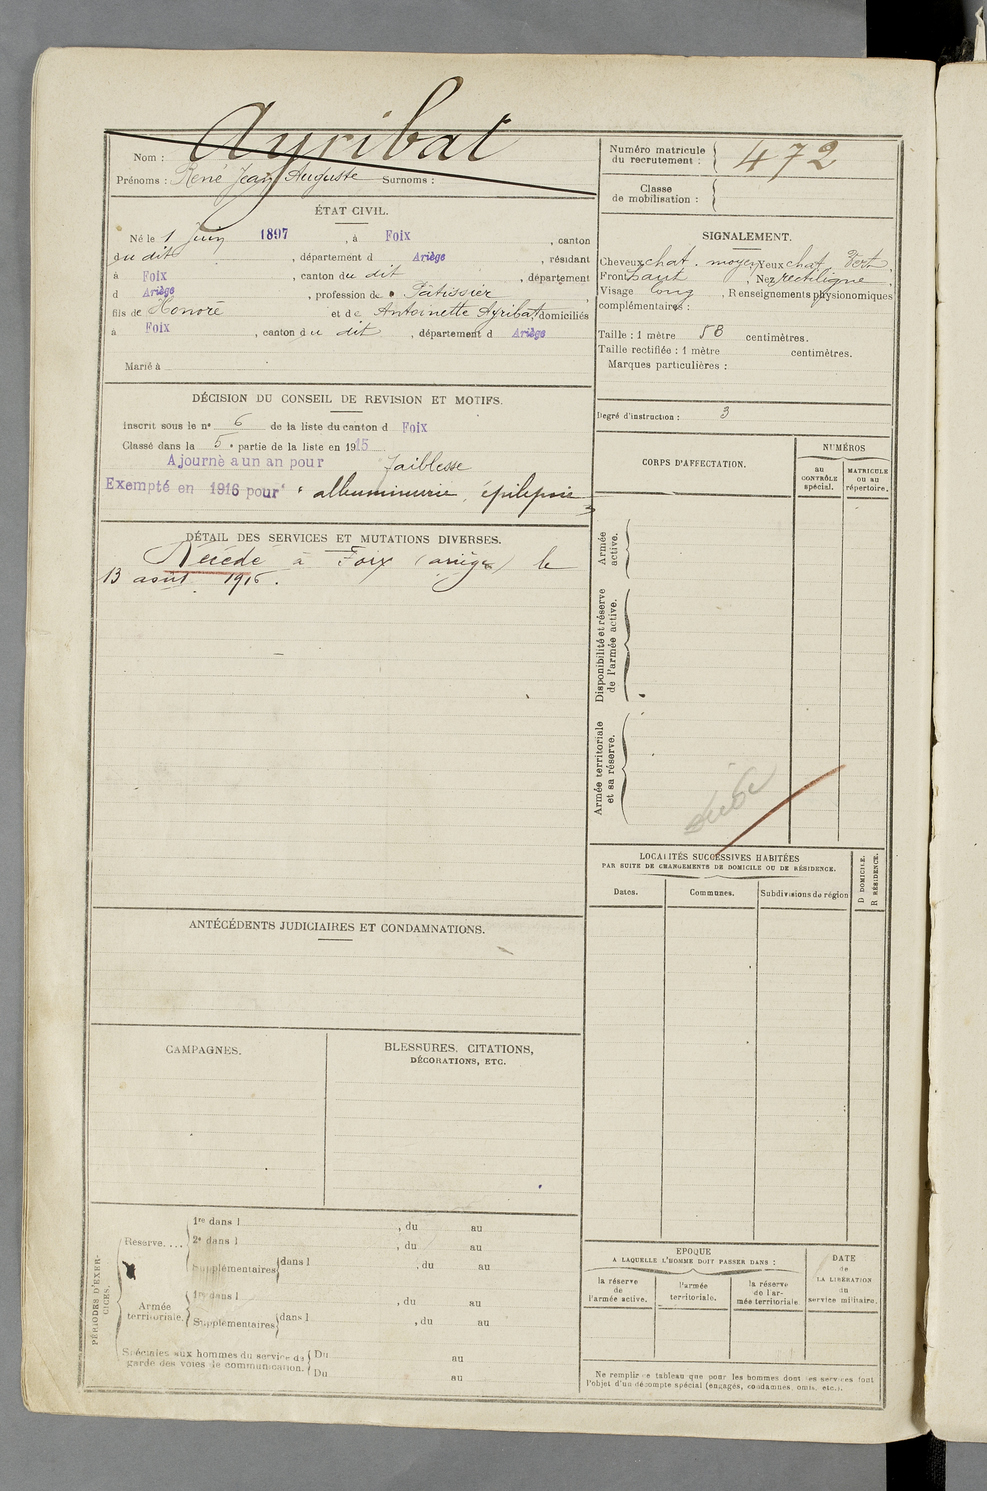 Nom : Ayribat
Prénoms : René Jean Auguste Surnoms :
Numéro matricule du recrutement : 472
Classe de mobilisation :
ÉTAT CIVIL.
Né le 1 Juin 1897, à Foix, canton
du dit, département d Ariège, résidant
à Foix, canton du dit, département
d Ariège, profession de Pâtissier
fils de Honoré et de Antoinette Ayribat, domiciliés
à Foix, canton du dit, département d Ariège
Marié à
SIGNALEMENT.
Cheveux chat. moyen Yeux chat. Vert,
Front haut, Nez rectiligne,
Visage long, Renseignements physionomiques
complémentaires :
Taille : 1 mètre 58 centimètres.
Taille rectifiée : 1 mètre centimètres.
Marques particulières :
Degré d'instruction : 3
DÉCISION DU CONSEIL DE REVISION ET MOTIFS.
Inscrit sous le n° 6 de la liste du canton d Foix
Classé dans la 5e partie de la liste en 1915
Ajourné a un an pour faiblesse
Exempté en 1916 pour albuminurie, épilepsie
DÉTAIL DES SERVICES ET MUTATIONS DIVERSES.
Décédé à Foix (ariège) le
13 août 1916.
CORPS D'AFFECTATION.
NUMÉROS
au CONTRÔLE spécial.
MATRICULE ou au répertoire.
Armée active.
Disponibilité et réserve de l'armée active.
Armée territoriale et sa réserve.
LOCALITÉS SUCCESSIVES HABITÉES
PAR SUITE DE CHANGEMENTS DE DOMICILE OU DE RÉSIDENCE.
Dates.
Communes.
Subdivisions de région
D DOMICILE.
R RÉSIDENCE.
ANTÉCÉDENTS JUDICIAIRES ET CONDAMNATIONS.
CAMPAGNES.
BLESSURES, CITATIONS,
DÉCORATIONS, ETC.
PÉRIODES D'EXERCICES.
Réserve....
1re dans l , du au
2e dans l , du au
Supplémentaires dans l , du au
Armée territoriale.
1re dans l , du au
Supplémentaires dans l , du au
Spéciales aux hommes du service de garde des voies de communication.
Du au
Du au
EPOQUE
A LAQUELLE L'HOMME DOIT PASSER DANS :
la réserve de l'armée active.
l'armée territoriale.
la réserve de l'armée territoriale
DATE de LA LIBÉRATION du service militaire.
Ne remplir ce tableau que pour les hommes dont les services font
l'objet d'un décompte spécial (engagés, condamnés, omis, etc.).